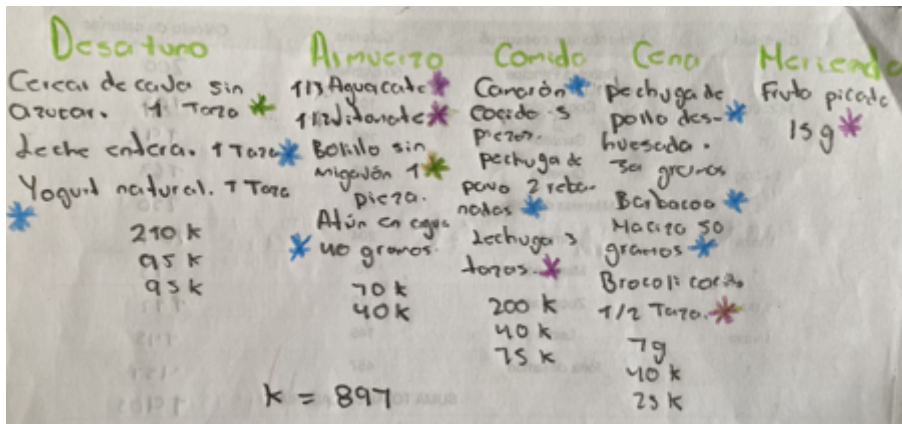 Desayuno
Cereal de caja sin
azucar. 1 Taza
Leche entera. 1 Taza
Yogurt natural. 1 Taza
210 k
95 k
95 k
Almuerzo
1/3 Aguacate
1 1/2 Jitomate
Bolillo sin
migajón 1
pieza.
Atún en agua
40 gramos.
70 k
40 k
Comida
Camarón
cocido 5
piezas.
pechuga de
pavo 2 reba-
nadas
Lechuga 3
tazas.
200 k
40 k
75 k
Cena
pechuga de
pollo des-
huesada.
30 gramos
Barbacoa
Maciza 50
gramos
Brocoli cocido
1/2 Taza.
7g
40 k
25 k
Merienda
Fruta picada
15 g
k = 897